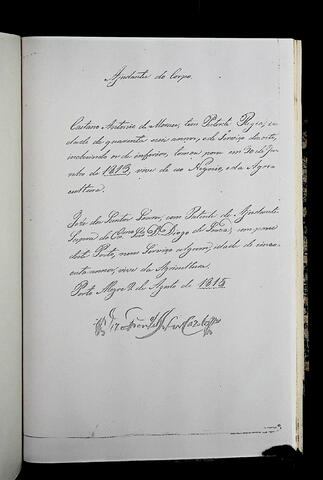 Ajudante do Corpo.
Caetano Antonio de Moraes, tem Patente Regia, i-
dade de quarenta seis annos, e de Serviço dezoito,
incluindo os de inferior, tomou posse em 30 de
de 1813, vive de seo Negocio, e da Agri-
cultura.
José dos Santos com Patente de Ajudante
Diogo de Souza, com posse
deste Posto, nem Serviço algum, idade de cinco-
enta annos, vive da Agricultura.
Porto Alegre 2 de Agosto de 1815